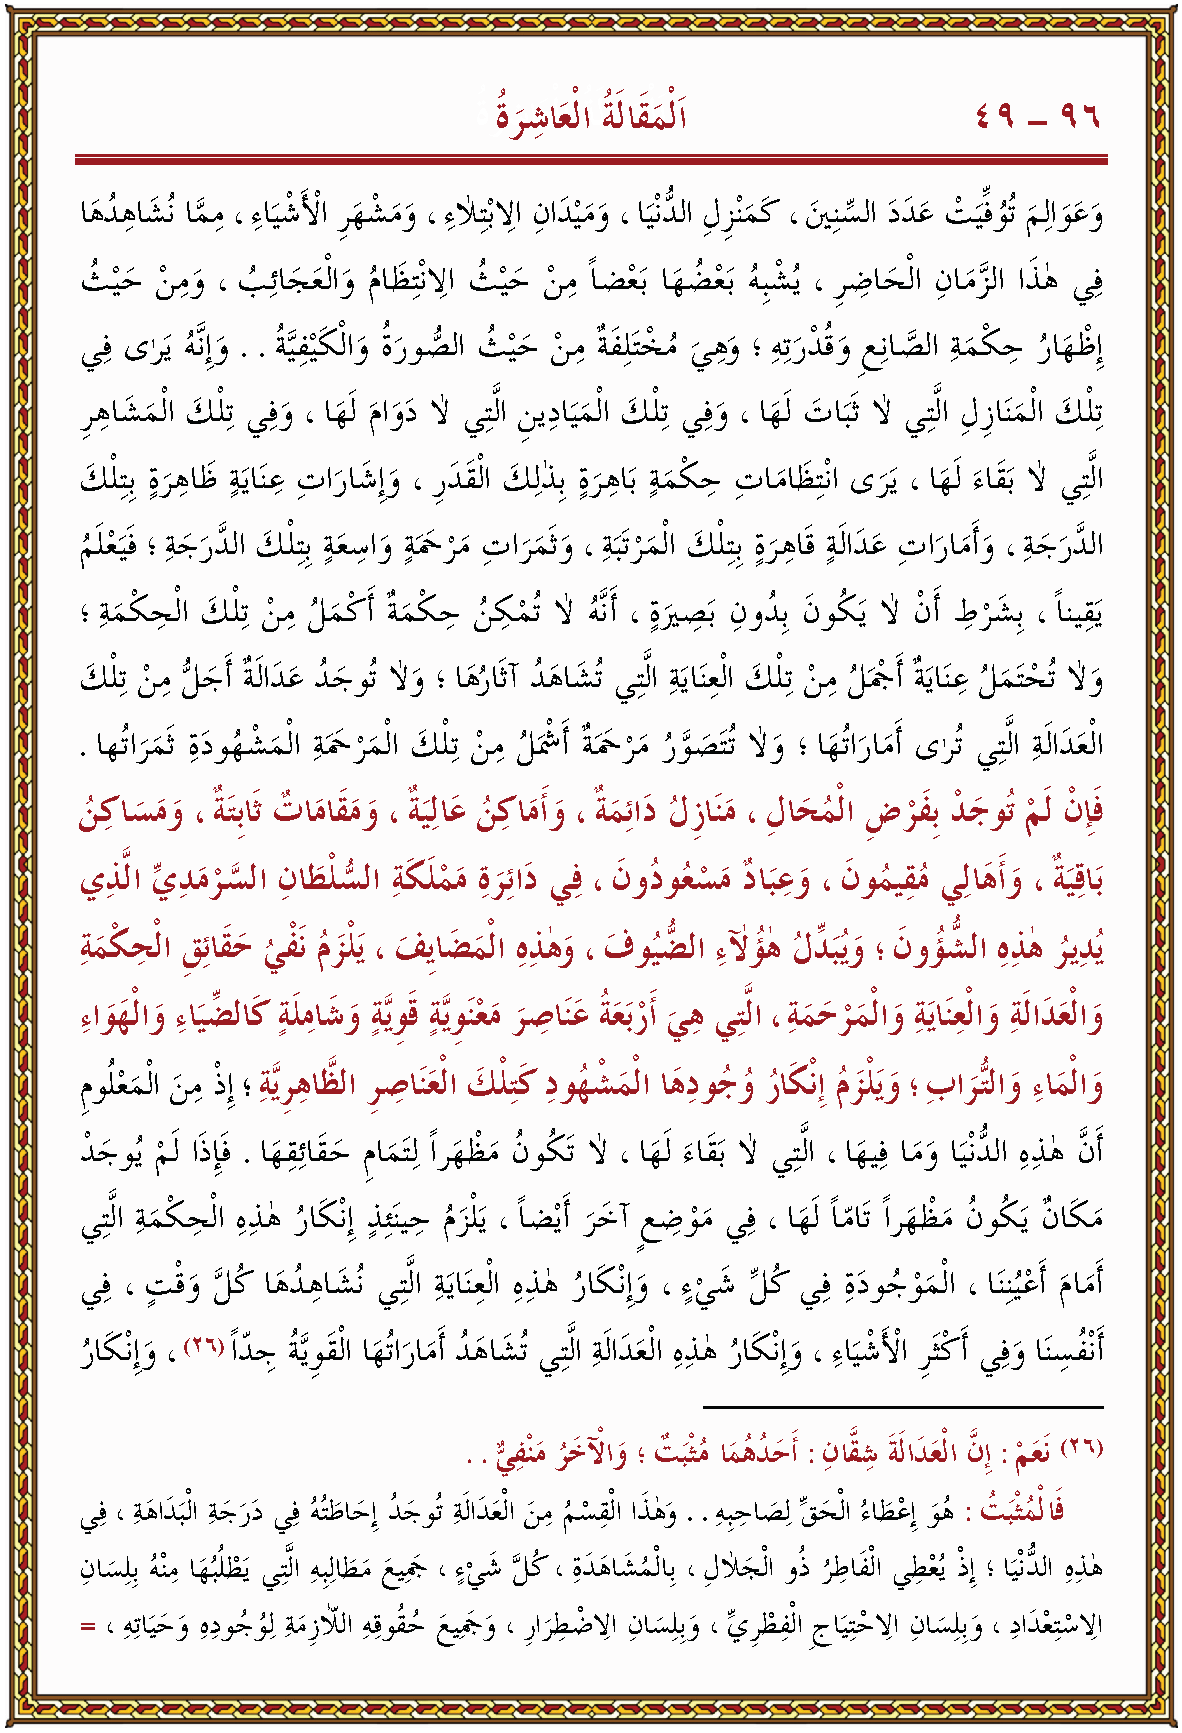 ٩٦ – ٤٩ اَلْمَقَالَةُ الْعَاشِرَةُ
وَعَوَالِمَ تُوُفِّيَتْ عَدَدَ السِّنِينَ ، كَمَنْزِلِ الدُّنْيَا ، وَمَيْدَانِ الْاِبْتِلَاءِ ، وَمَشْهَرِ الْأَشْيَاءِ ، مِمَّا نُشَاهِدُهَا
فِي هٰذَا الزَّمَانِ الْحَاضِرِ ، يُشْبِهُ بَعْضُهَا بَعْضاً مِنْ حَيْثُ الْاِنْتِظَامُ وَالْعَجَائِبُ ، وَمِنْ حَيْثُ
إِظْهَارُ حِكْمَةِ الصَّانِعِ وَقُدْرَتِهِ ؛ وَهِيَ مُخْتَلِفَةٌ مِنْ حَيْثُ الصُّورَةُ وَالْكَيْفِيَّةُ . . وَإِنَّهُ يَرٰى فِي
تِلْكَ الْمَنَازِلِ الَّتِي لَا ثَبَاتَ لَهَا ، وَفِي تِلْكَ الْمَيَادِينِ الَّتِي لَا دَوَامَ لَهَا ، وَفِي تِلْكَ الْمَشَاهِرِ
الَّتِي لَا بَقَاءَ لَهَا ، يَرَى انْتِظَامَاتِ حِكْمَةٍ بَاهِرَةٍ بِذٰلِكَ الْقَدَرِ ، وَإِشَارَاتِ عِنَايَةٍ ظَاهِرَةٍ بِتِلْكَ
الدَّرَجَةِ ، وَأَمَارَاتِ عَدَالَةٍ قَاهِرَةٍ بِتِلْكَ الْمَرْتَبَةِ ، وَثَمَرَاتِ مَرْحَمَةٍ وَاسِعَةٍ بِتِلْكَ الدَّرَجَةِ ؛ فَيَعْلَمُ
يَقِيناً ، بِشَرْطِ أَنْ لَا يَكُونَ بِدُونِ بَصِيرَةٍ ، أَنَّهُ لَا تُمْكِنُ حِكْمَةٌ أَكْمَلُ مِنْ تِلْكَ الْحِكْمَةِ ؛
وَلَا تُحْتَمَلُ عِنَايَةٌ أَجْمَلُ مِنْ تِلْكَ الْعِنَايَةِ الَّتِي تُشَاهَدُ آثَارُهَا ؛ وَلَا تُوجَدُ عَدَالَةٌ أَجَلُّ مِنْ تِلْكَ
الْعَدَالَةِ الَّتِي تُرٰى أَمَارَاتُهَا ؛ وَلَا تُتَصَوَّرُ مَرْحَمَةٌ أَشْمَلُ مِنْ تِلْكَ الْمَرْحَمَةِ الْمَشْهُودَةِ ثَمَرَاتُهَا .
فَإِنْ لَمْ تُوجَدْ بِفَرْضِ الْمُحَالِ ، مَنَازِلُ دَائِمَةٌ ، وَأَمَاكِنُ عَالِيَةٌ ، وَمَقَامَاتٌ ثَابِتَةٌ ، وَمَسَاكِنُ
بَاقِيَةٌ ، وَأَهَالِي مُقِيمُونَ ، وَعِبَادٌ مَسْعُودُونَ ، فِي دَائِرَةِ مَمْلَكَةِ السُّلْطَانِ السَّرْمَدِيِّ الَّذِي
يُدِيرُ هٰذِهِ الشُّؤُونَ ؛ وَيُبَدِّلُ هٰؤُلَاءِ الضُّيُوفَ ، وَهٰذِهِ الْمَضَايِفَ ، يَلْزَمُ نَفْيُ حَقَائِقِ الْحِكْمَةِ
وَالْعَدَالَةِ وَالْعِنَايَةِ وَالْمَرْحَمَةِ ، الَّتِي هِيَ أَرْبَعَةُ عَنَاصِرَ مَعْنَوِيَّةٍ قَوِيَّةٍ وَشَامِلَةٍ كَالضِّيَاءِ وَالْهَوَاءِ
وَالْمَاءِ وَالتُّرَابِ ؛ وَيَلْزَمُ إِنْكَارُ وُجُودِهَا الْمَشْهُودِ كَتِلْكَ الْعَنَاصِرِ الظَّاهِرِيَّةِ ؛ إِذْ مِنَ الْمَعْلُومِ
أَنَّ هٰذِهِ الدُّنْيَا وَمَا فِيهَا ، الَّتِي لَا بَقَاءَ لَهَا ، لَا تَكُونُ مَظْهَراً لِتَمَامِ حَقَائِقِهَا . فَإِذَا لَمْ يُوجَدْ
مَكَانٌ يَكُونُ مَظْهَراً تَامّاً لَهَا ، فِي مَوْضِعٍ آخَرَ أَيْضاً ، يَلْزَمُ حِينَئِذٍ إِنْكَارُ هٰذِهِ الْحِكْمَةِ الَّتِي
أَمَامَ أَعْيُنِنَا ، الْمَوْجُودَةِ فِي كُلِّ شَيْءٍ ، وَإِنْكَارُ هٰذِهِ الْعِنَايَةِ الَّتِي نُشَاهِدُهَا كُلَّ وَقْتٍ ، فِي
أَنْفُسِنَا وَفِي أَكْثَرِ الْأَشْيَاءِ ، وَإِنْكَارُ هٰذِهِ الْعَدَالَةِ الَّتِي تُشَاهَدُ أَمَارَاتُهَا الْقَوِيَّةُ جِدّاً (٢٦) ، وَإِنْكَارُ
(٢٦) نَعَمْ : إِنَّ الْعَدَالَةَ شِقَّانِ : أَحَدُهُمَا مُثْبَتٌ ؛ وَالْآخَرُ مَنْفِيٌّ . .
فَالْمُثْبَتُ : هُوَ إِعْطَاءُ الْحَقِّ لِصَاحِبِهِ . . وَهٰذَا الْقِسْمُ مِنَ الْعَدَالَةِ تُوجَدُ إِحَاطَتُهُ فِي دَرَجَةِ الْبَدَاهَةِ ، فِي
هٰذِهِ الدُّنْيَا ؛ إِذْ يُعْطِي الْفَاطِرُ ذُو الْجَلَالِ ، بِالْمُشَاهَدَةِ ، كُلَّ شَيْءٍ ، جَمِيعَ مَطَالِبِهِ الَّتِي يَطْلُبُهَا مِنْهُ بِلِسَانِ
الْاِسْتِعْدَادِ ، وَبِلِسَانِ الْاِحْتِيَاجِ الْفِطْرِيِّ ، وَبِلِسَانِ الْاِضْطِرَارِ ، وَجَمِيعَ حُقُوقِهِ اللَّازِمَةِ لِوُجُودِهِ وَحَيَاتِهِ ، =